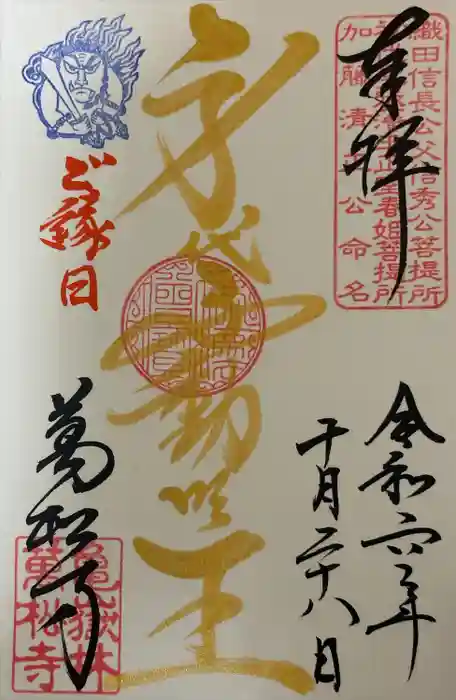 織田信長公父信秀公菩提所
室春姫菩提所
加藤清正公命名
奉拝
身代不動明王
ご縁日
令和六年
十月二十八日
萬松寺
亀嶽林
萬松寺